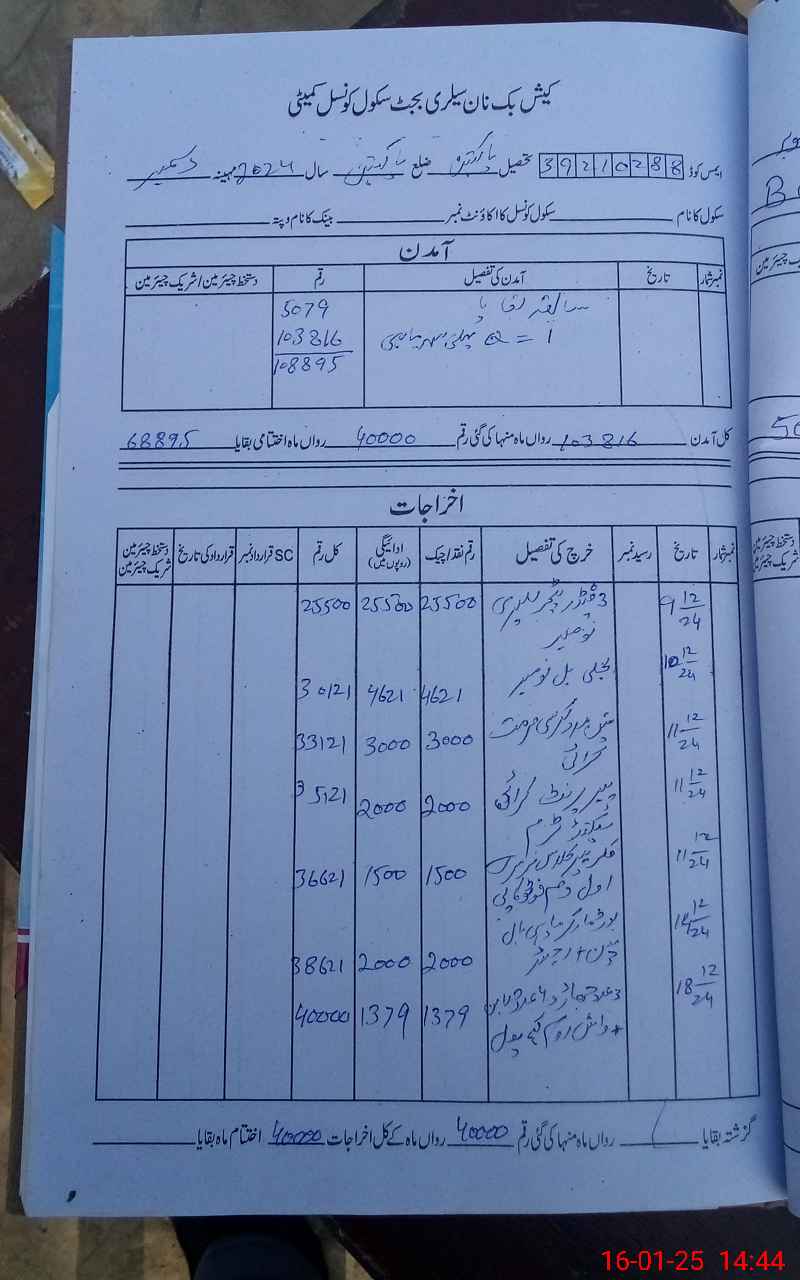 کیش بک نان سیلری بجٹ سکول کونسل کمیٹی
ایمس کوڈ 39210288 تحصیل پاکپتن ضلع پاکپتن سال 2024 مہینہ دسمبر
سکول کا نام سکول کونسل کا اکاؤنٹ نمبر بینک کا نام و پتہ
آمدن
نمبر شمار تاریخ آمدن کی تفصیل رقم دستخط چیئرمین/شریک چیئرمین
سابقہ بقایا 5079
پہلی سہ ماہی Q = 1 103816
108895
کل آمدن 103816 رواں ماہ منہا کی گئی رقم 40000 رواں ماہ اختتامی بقایا 68895
اخراجات
نمبر شمار تاریخ رسید نمبر خرچ کی تفصیل رقم نقد/چیک ادائیگی (روپوں میں) کل رقم SC قرارداد نمبر قرارداد کی تاریخ دستخط چیئرمین شریک چیئرمین
9 12/24 ٹیچر سیلری 25500 25500 25500
نومبر
10 12/24 بجلی بل نومبر 4621 4621 30121
11 12/24 مرمت 3000 3000 33121
کرائی
11 12/24 پیپر پرنٹ کرائے 2000 2000 35121
سیکنڈ ٹرم
11 12/24 1500 1500 36621
اول دہم فوٹو کاپی
12/24 بورڈ مارکر
2000 2000 38621
18 12/24 1379 1379 40000
+ واش روم کے
گزشتہ بقایا رواں ماہ منہا کی گئی رقم 40000 رواں ماہ کے کل اخراجات 40000 اختتام ماہ بقایا
16-01-25 14:44